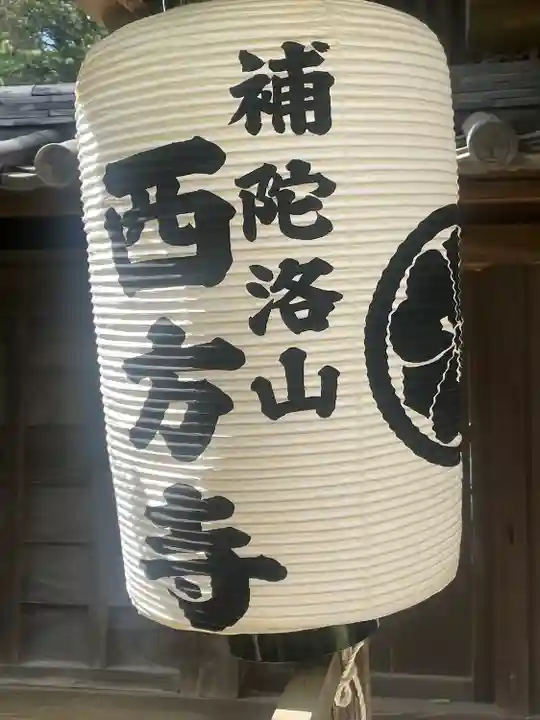 補陀洛山
西方寺